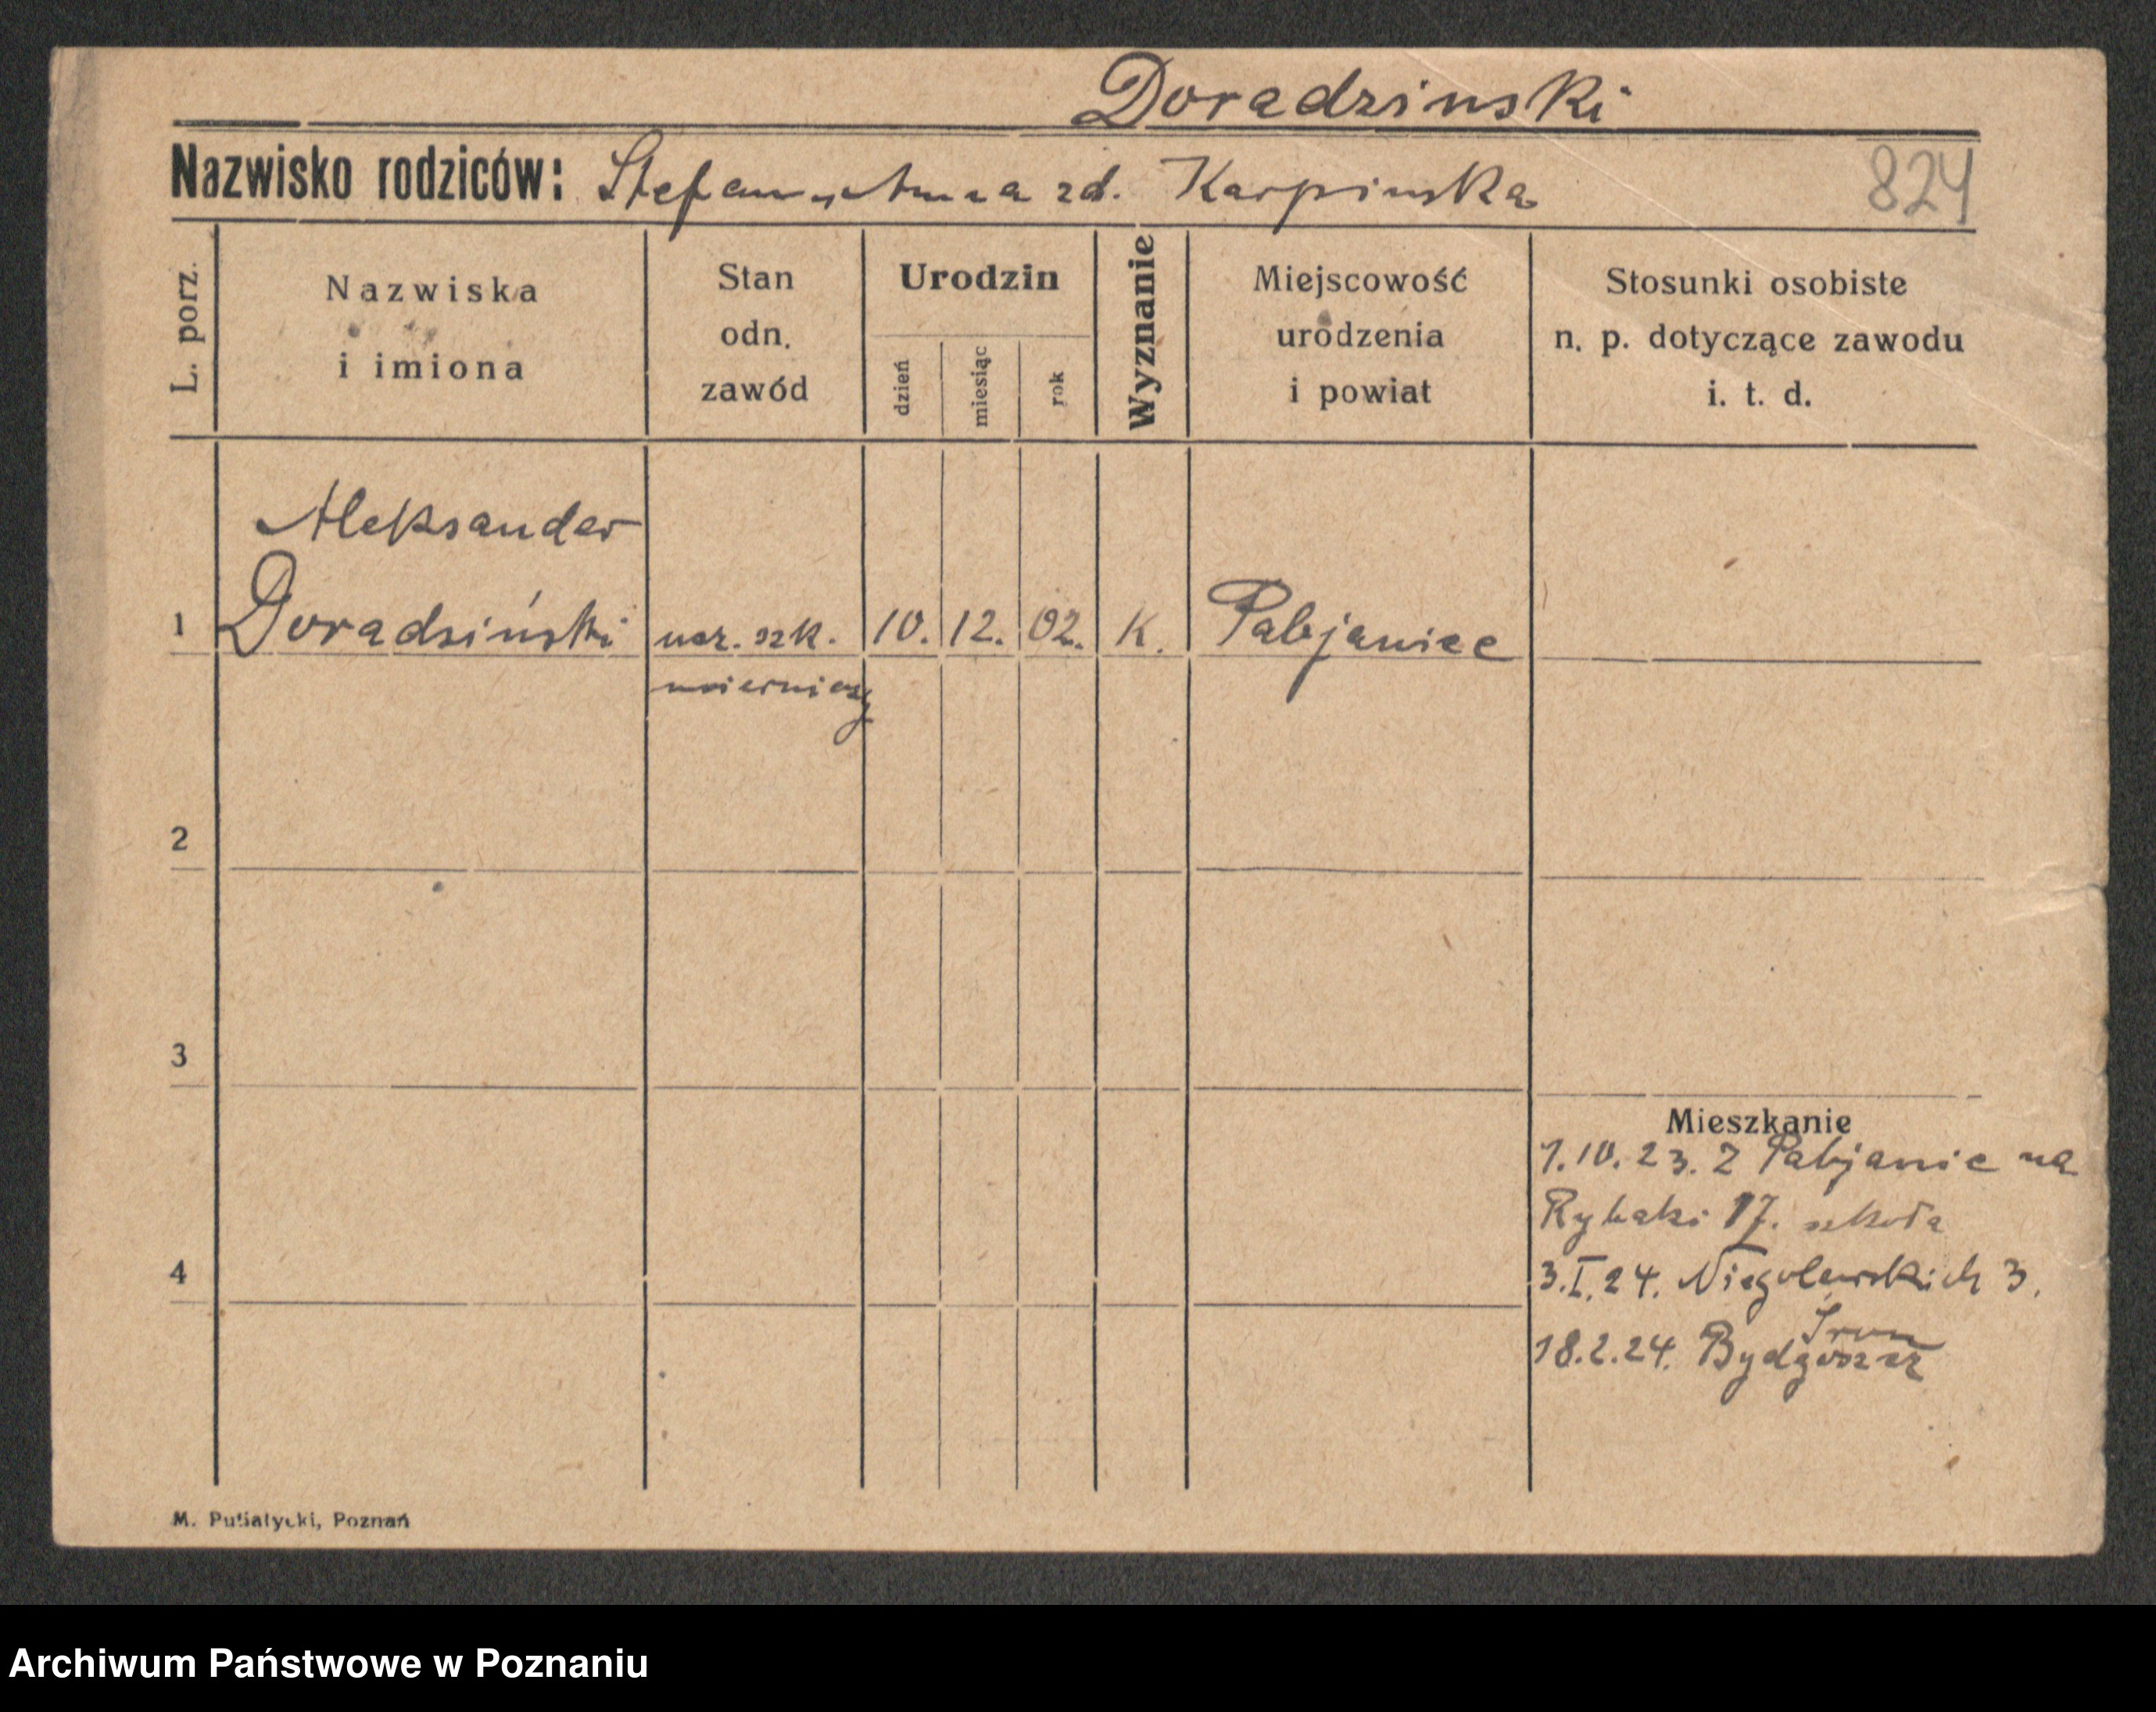 Doradzinski
Nazwisko rodziców: Stefan, Anna zd. Karpinska
824
L. porz.
Nazwiska
i imiona
Stan
odn.
zawód
Urodzin
dzień
miesiąc
rok
Wyznanie
Miejscowość
urodzenia
i powiat
Stosunki osobiste
n. p. dotyczące zawodu
i. t. d.
Aleksander
1 Doradziński ucz. szk. 10. 12. 02. K. Pabjanice
mierniczy
2
3
Mieszkanie
1.10.23. Z Pabjanic na
Rybaki 17. szkoła
4
3.I.24. Niegolewskich 3.
18.2.24. Bydgoszcz
M. Putiatycki, Poznań
Archiwum Państwowe w Poznaniu